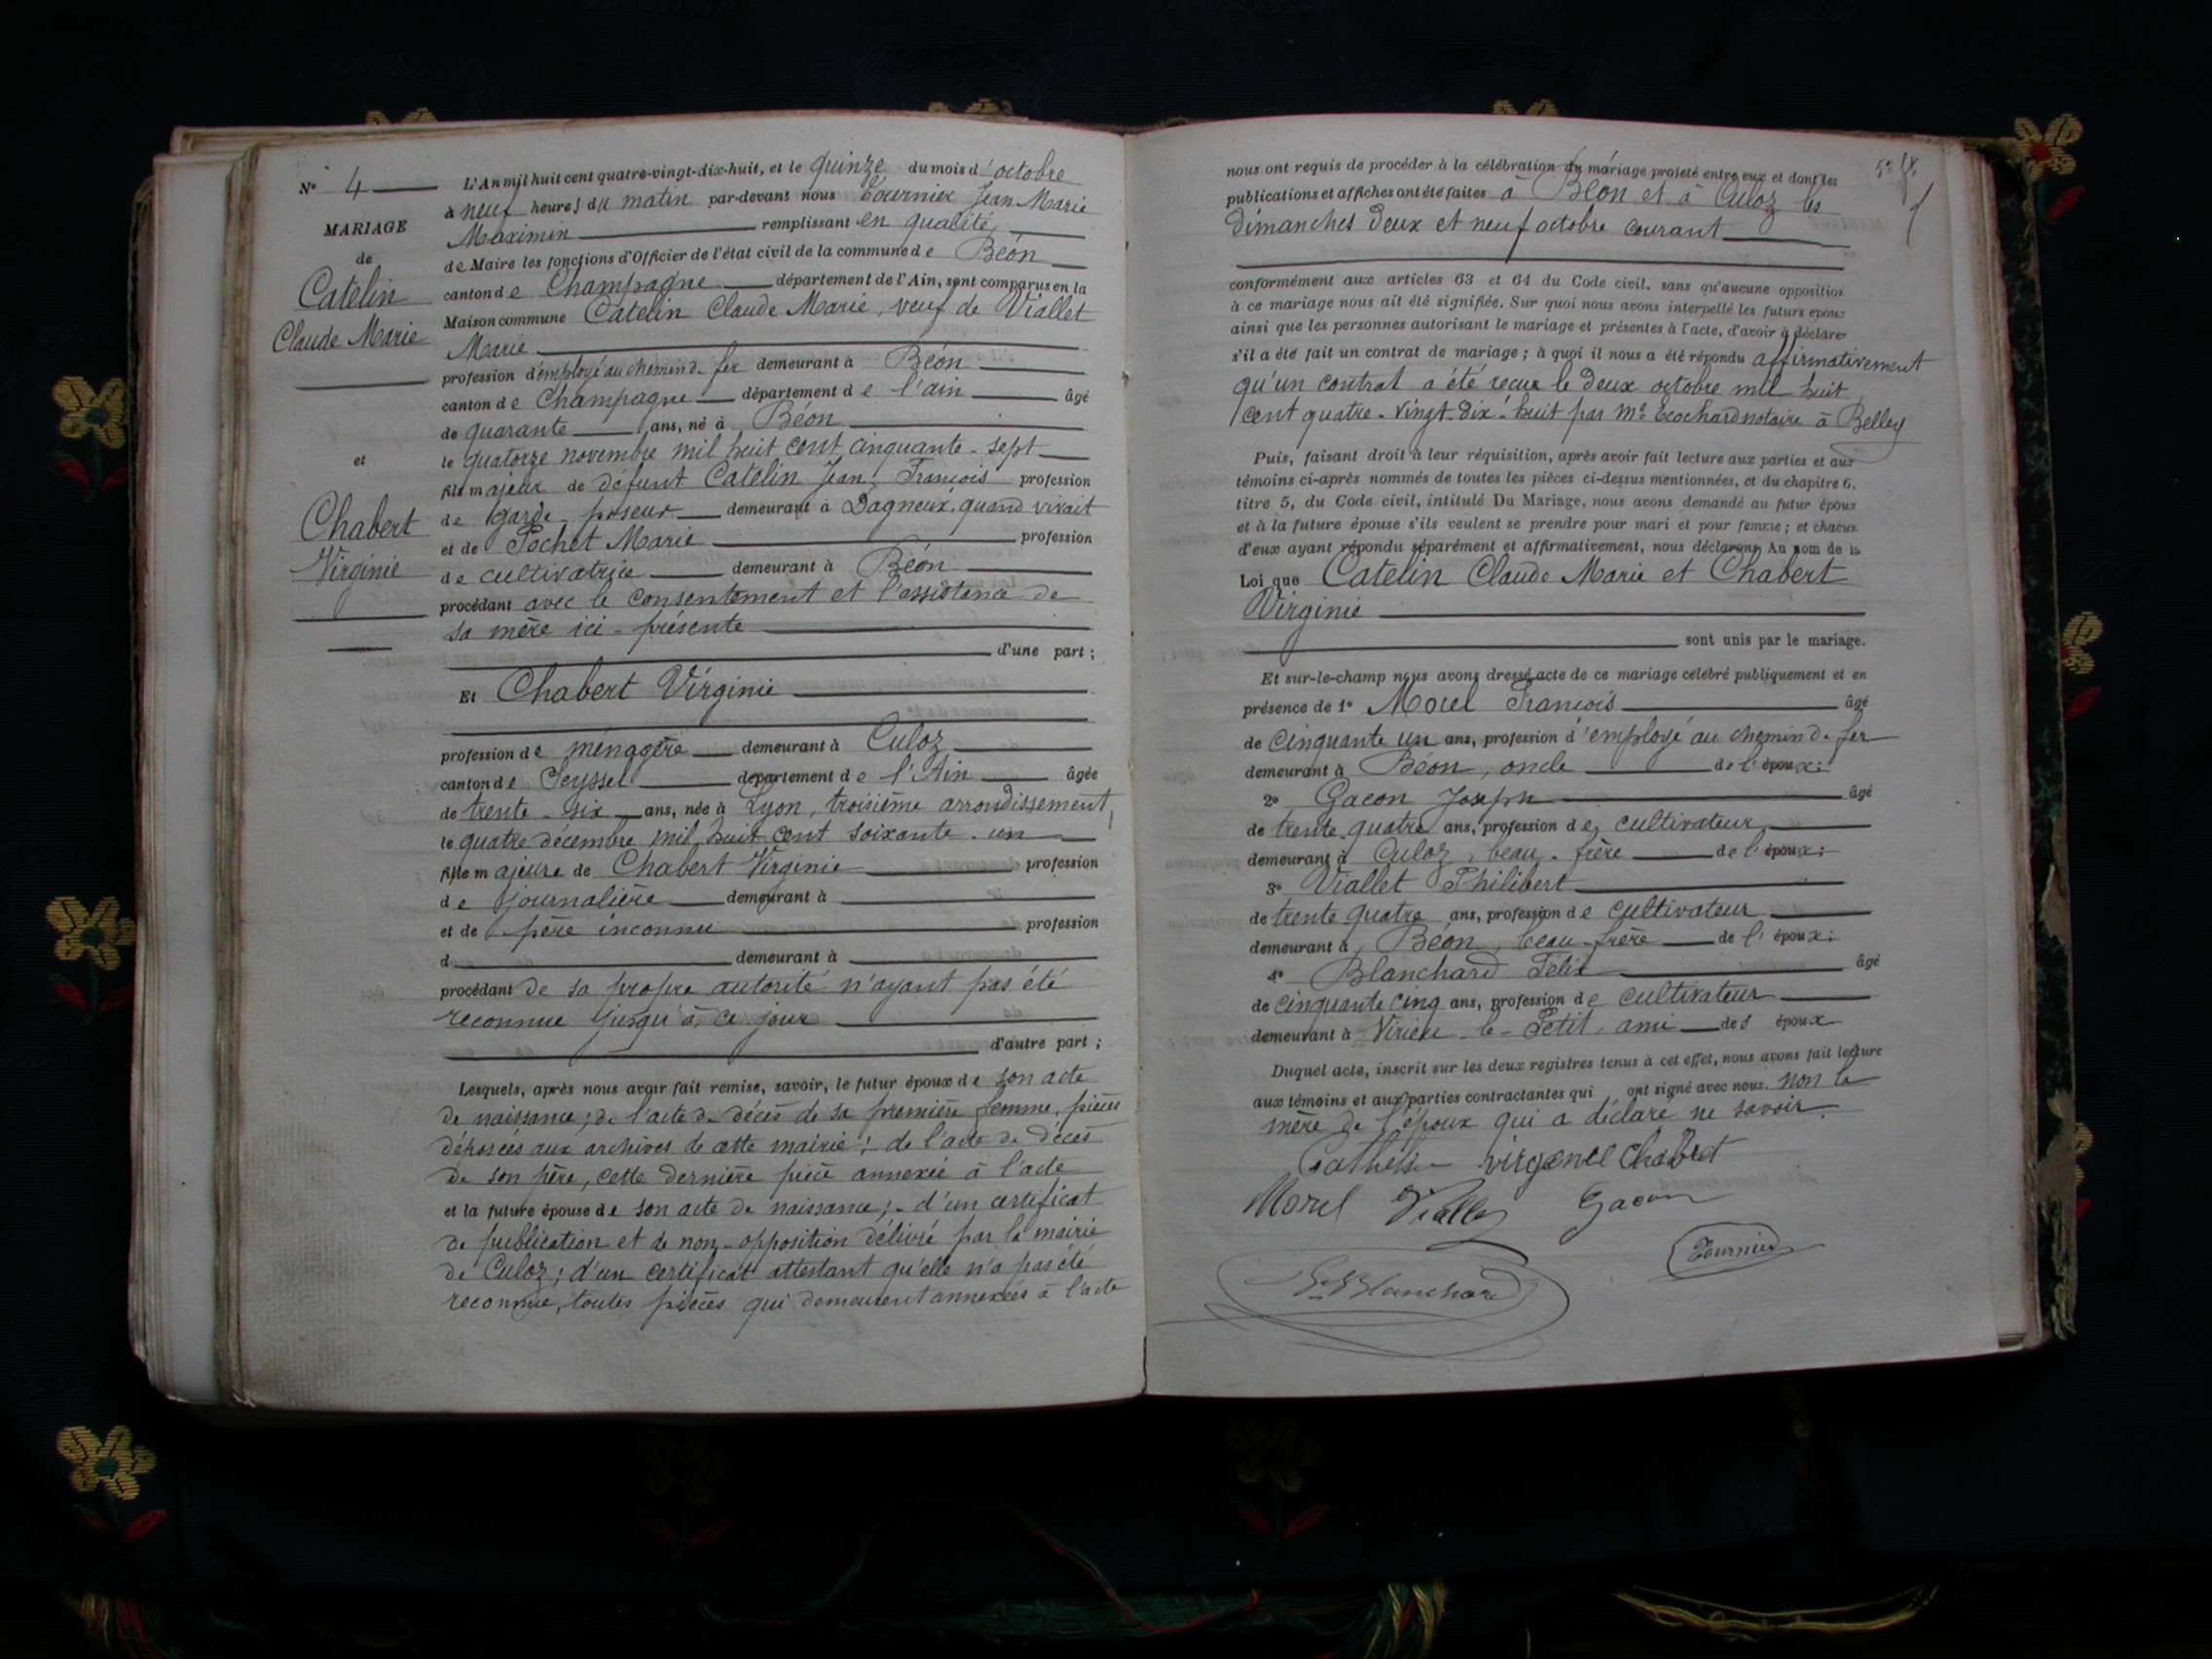 N° 4
MARIAGE
de
Catelin
Claude Marie
et
Chabert
Virginie
L'An mil huit cent quatre-vingt-dix-huit, et le quinze du mois d'octobre
à neuf heures du matin par-devant nous Fournier Jean Marie
Maximin remplissant en qualité
de Maire les fonctions d'Officier de l'état civil de la commune de Béon
canton de Champagne département de l'Ain, sont comparus en la
Maison commune Catelin Claude Marie, veuf de Viallet
Marie
profession d'employé au chemin de fer demeurant à Béon
canton de Champagne département de l'ain âgé
de quarante ans, né à Béon
le quatorze novembre mil huit cent cinquante-sept
fils majeur de défunt Catelin Jean François profession
de garde poseur demeurant à Dagneux, quand vivait
et de Pochet Marie profession
de cultivatrice demeurant à Béon
procédant avec le consentement et l'assistance de
sa mère ici-présente
d'une part ;
Et Chabert Virginie
profession de ménagère demeurant à Culoz
canton de Seyssel département de l'Ain âgée
de trente-six ans, née à Lyon, troisième arrondissement,
le quatre décembre mil huit cent soixante-un
fille majeure de Chabert Virginie profession
de journalière demeurant à
et de père inconnu profession
d demeurant à
procédant de sa propre autorité n'ayant pas été
reconnue jusqu'à ce jour
d'autre part ;
Lesquels, après nous avoir fait remise, savoir, le futur époux de son acte
de naissance ; de l'acte de décès de sa première femme, pièces
déposées aux archives de cette mairie ; de l'acte de décès
de son père, cette dernière pièce annexée à l'acte
et la future épouse de son acte de naissance ; d'un certificat
de publication et de non-opposition délivré par la mairie
de Culoz ; d'un certificat attestant qu'elle n'a pas été
reconnue, toutes pièces qui demeurent annexées à l'acte
nous ont requis de procéder à la célébration du mariage projeté entre eux et dont les
publications et affiches ont été faites à Béon et à Culoz les
dimanches deux et neuf octobre courant
conformément aux articles 63 et 64 du Code civil, sans qu'aucune opposition
à ce mariage nous ait été signifiée. Sur quoi nous avons interpellé les futurs époux
ainsi que les personnes autorisant le mariage et présentes à l'acte, d'avoir à déclarer
s'il a été fait un contrat de mariage ; à quoi il nous a été répondu affirmativement
qu'un contrat a été reçu le deux octobre mil huit
cent quatre-vingt-dix-huit par Me Ecochard notaire à Belley
Puis, faisant droit à leur réquisition, après avoir fait lecture aux parties et aux
témoins ci-après nommés de toutes les pièces ci-dessus mentionnées, et du chapitre 6,
titre 5, du Code civil, intitulé Du Mariage, nous avons demandé au futur époux
et à la future épouse s'ils veulent se prendre pour mari et pour femme ; et chacun
d'eux ayant répondu séparément et affirmativement, nous déclarons Au nom de la
Loi que Catelin Claude Marie et Chabert
Virginie
sont unis par le mariage.
Et sur-le-champ nous avons dressé acte de ce mariage célébré publiquement et en
présence de 1° Morel François âgé
de cinquante un ans, profession d'employé au chemin de fer
demeurant à Béon, oncle de l'époux ;
2° Gacon Joseph âgé
de trente quatre ans, profession de cultivateur
demeurant à Culoz, beau-frère de l'époux ;
3° Viallet Philibert
de trente quatre ans, profession de cultivateur
demeurant à Béon, beau-frère de l'époux ;
4° Blanchard Félix âgé
de cinquante cinq ans, profession de cultivateur
demeurant à Virieu-le-Petit, ami des époux
Duquel acte, inscrit sur les deux registres tenus à cet effet, nous avons fait lecture
aux témoins et aux parties contractantes qui ont signé avec nous. non la
mère de l'époux qui a déclaré ne savoir.
virgenie Chabert
Morel Viallet Gacon
Fournier
Blanchard